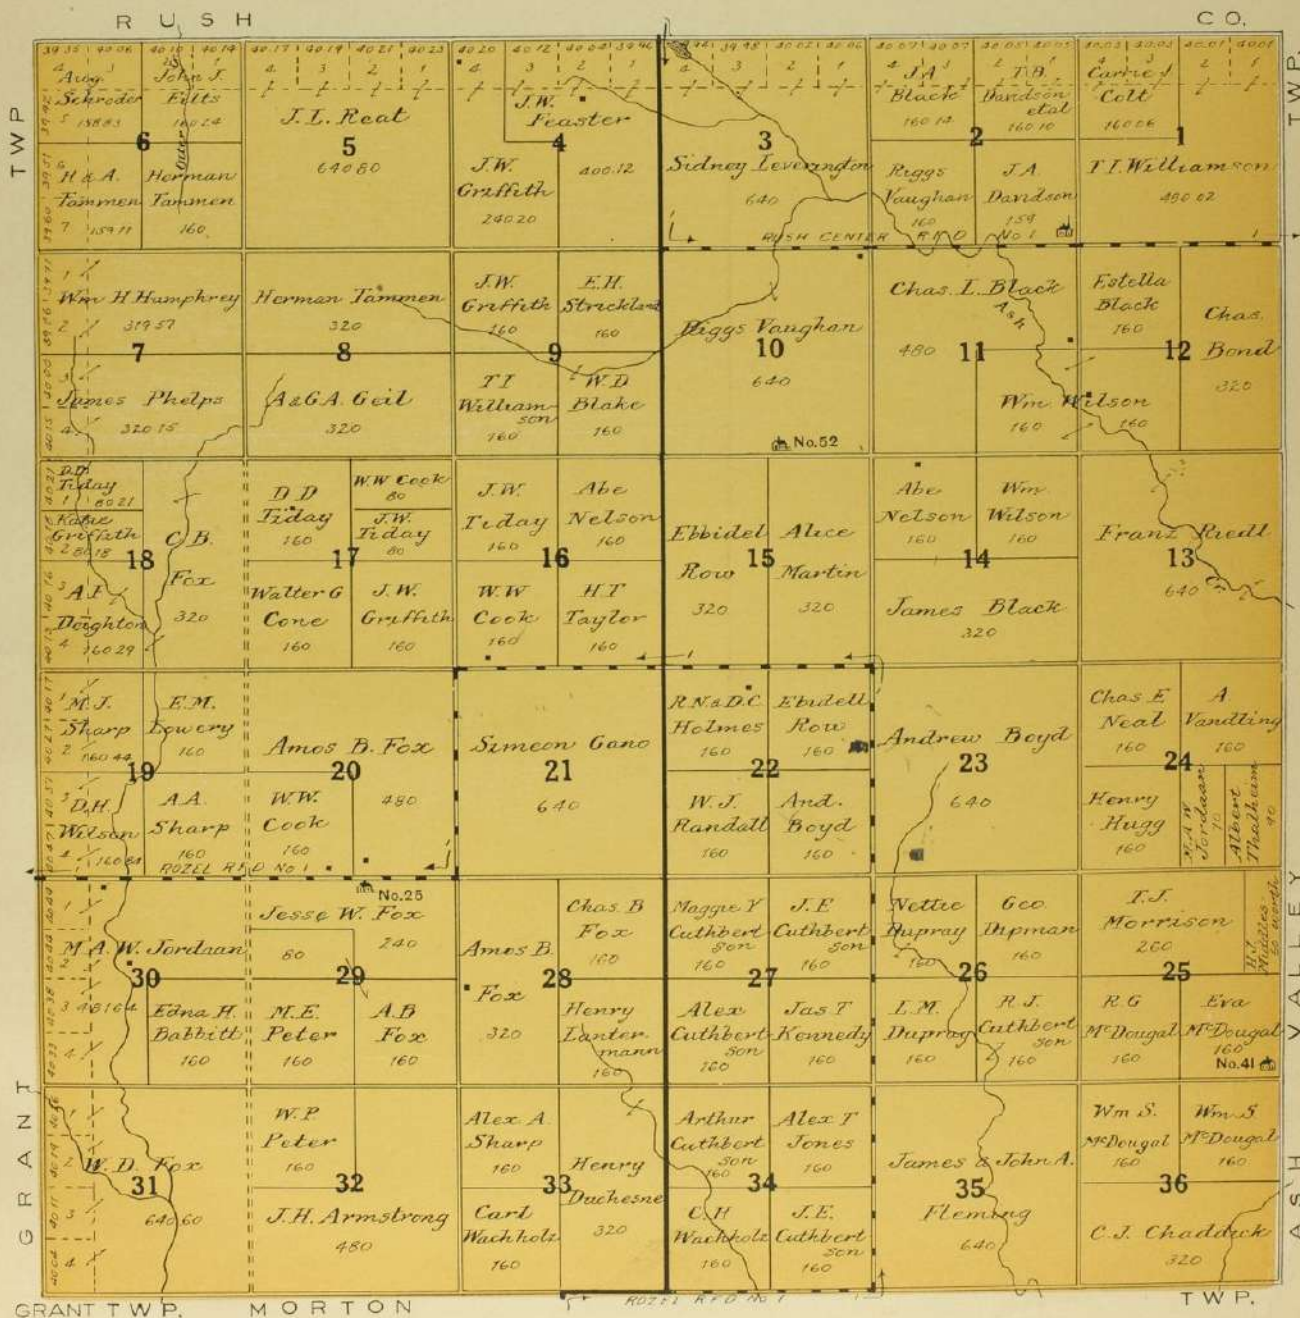 RUSH CO.
TWP
TWP.
39 35 40 06 40 10 40 14 40.17 40.19 40.21 40.23 40.20 40.12 40.04 39.96
4 3 2 1 4 3 2 1 4 3 2 1
Aug. Schroder
158 83
John J. Fitts
160 24
6
H & A. Tammen
159 11
Herman Tammen
160
J. L. Reat
5
640 80
J.W. Feaster
4
400.12
J.W. Griffith
240 20
3
Sidney Leverington
640
J.A. Black
160 14
T.B. Davidson etal
160 10
2
Riggs Vaughan
160
J.A. Davidson
159
Carrie J Colt
160 06
1
T I. Williamson
480 02
RUSH CENTER R F D No 1
Wm H Humphrey
319 57
7
James Phelps
320 15
Herman Tammen
320
8
A & G.A. Geil
320
J.W. Griffith
160
E.H. Strickland
160
9
T I Williamson
160
W.D. Blake
160
Riggs Vaughan
10
640
No.52
Chas. L. Black
Ash
480
11
Wm. Wilson
160
160
Estella Black
160
12
Chas. Bond
320
D.D. Tiday
1 80 21
Katie Griffith
2 80 18
18
A.F. Deighton
160 29
C.B. Fox
320
D D Tiday
160
W.W Cook
80
J.W. Tiday
80
17
Walter G Cone
160
J.W. Griffith
160
J.W. Tiday
160
Abe Nelson
160
16
W.W Cook
160
H.T Taylor
160
Ebbidel Row
320
15
Alice Martin
320
Abe Nelson
160
Wm. Wilson
160
14
James Black
320
Franz Riedl
13
640
M.J. Sharp
160 44
E.M. Lowery
160
19
D.H. Wilson
160 84
A.A. Sharp
160
ROZEL R F D No 1
Amos B. Fox
20
480
W.W. Cook
160
Simeon Gano
21
640
R.N & D.C Holmes
160
Ebidell Row
160
22
W.J. Randall
160
And. Boyd
160
Andrew Boyd
23
640
Chas E Neal
160
A Vandling
160
24
Henry Hugg
160
M.A W Jordaan
70
Albert Thalheim
90
No.25
M A. W. Jordaan
30
481 64
Edna H. Babbitt
160
Jesse W. Fox
240
80
29
M.E. Peter
160
A.B Fox
160
Amos B. Fox
320
Chas. B Fox
160
28
Henry Lantermann
160
Maggie Y Cuthbertson
160
J.E Cuthbertson
160
27
Alex Cuthbertson
160
Jas T Kennedy
160
Nettie Dupray
160
Geo. Dipman
160
26
L.M. Dupray
160
R.J. Cuthbertson
160
T.J. Morrison
260
25
R G McDougal
160
Eva McDougal
160
No.41
W. D. Fox
31
640 60
W.P. Peter
160
32
J.H. Armstrong
480
Alex A. Sharp
160
33
Carl Wachholz
160
Henry Duchesne
320
Arthur Cuthbertson
160
Alex T Jones
160
34
C.H Wachholz
160
J.E. Cuthbertson
160
James & John A. Fleming
35
640
Wm S. McDougal
160
Wm S McDougal
160
36
C.J. Chaddick
320
GRANT
ASH VALLEY
GRANT TWP. MORTON TWP.
ROZEL R F D No 1